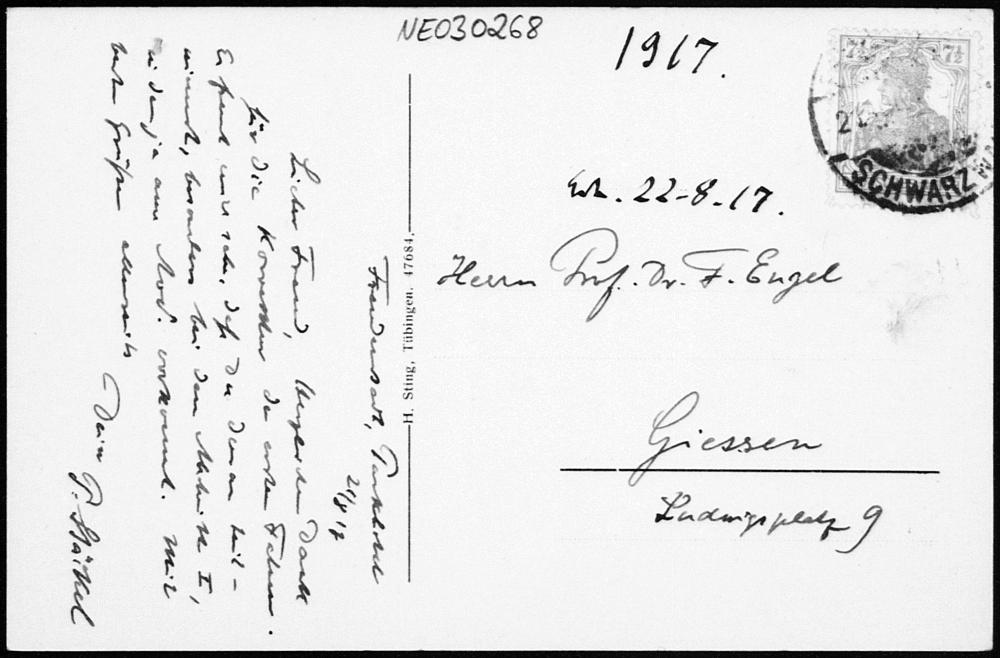 NE030268
1917.
7½ 7½
SCHWARZ
Erh. 22-8.17.
Herrn Prof. Dr. F. Engel
Giessen
Ludwigsplatz 9
H. Sting, Tübingen. 47684.
Freudenstadt, Parkhotel
21/8 17
Lieber Freund, herzlichen Dank
für die Korrektur der ersten Fahnen.
Es freut uns sehr, daß Du daran teil-
nimmst, besonders bei den
ja am vorkommt. Mit
besten Grüßen allerseits
Dein P. Stäckel